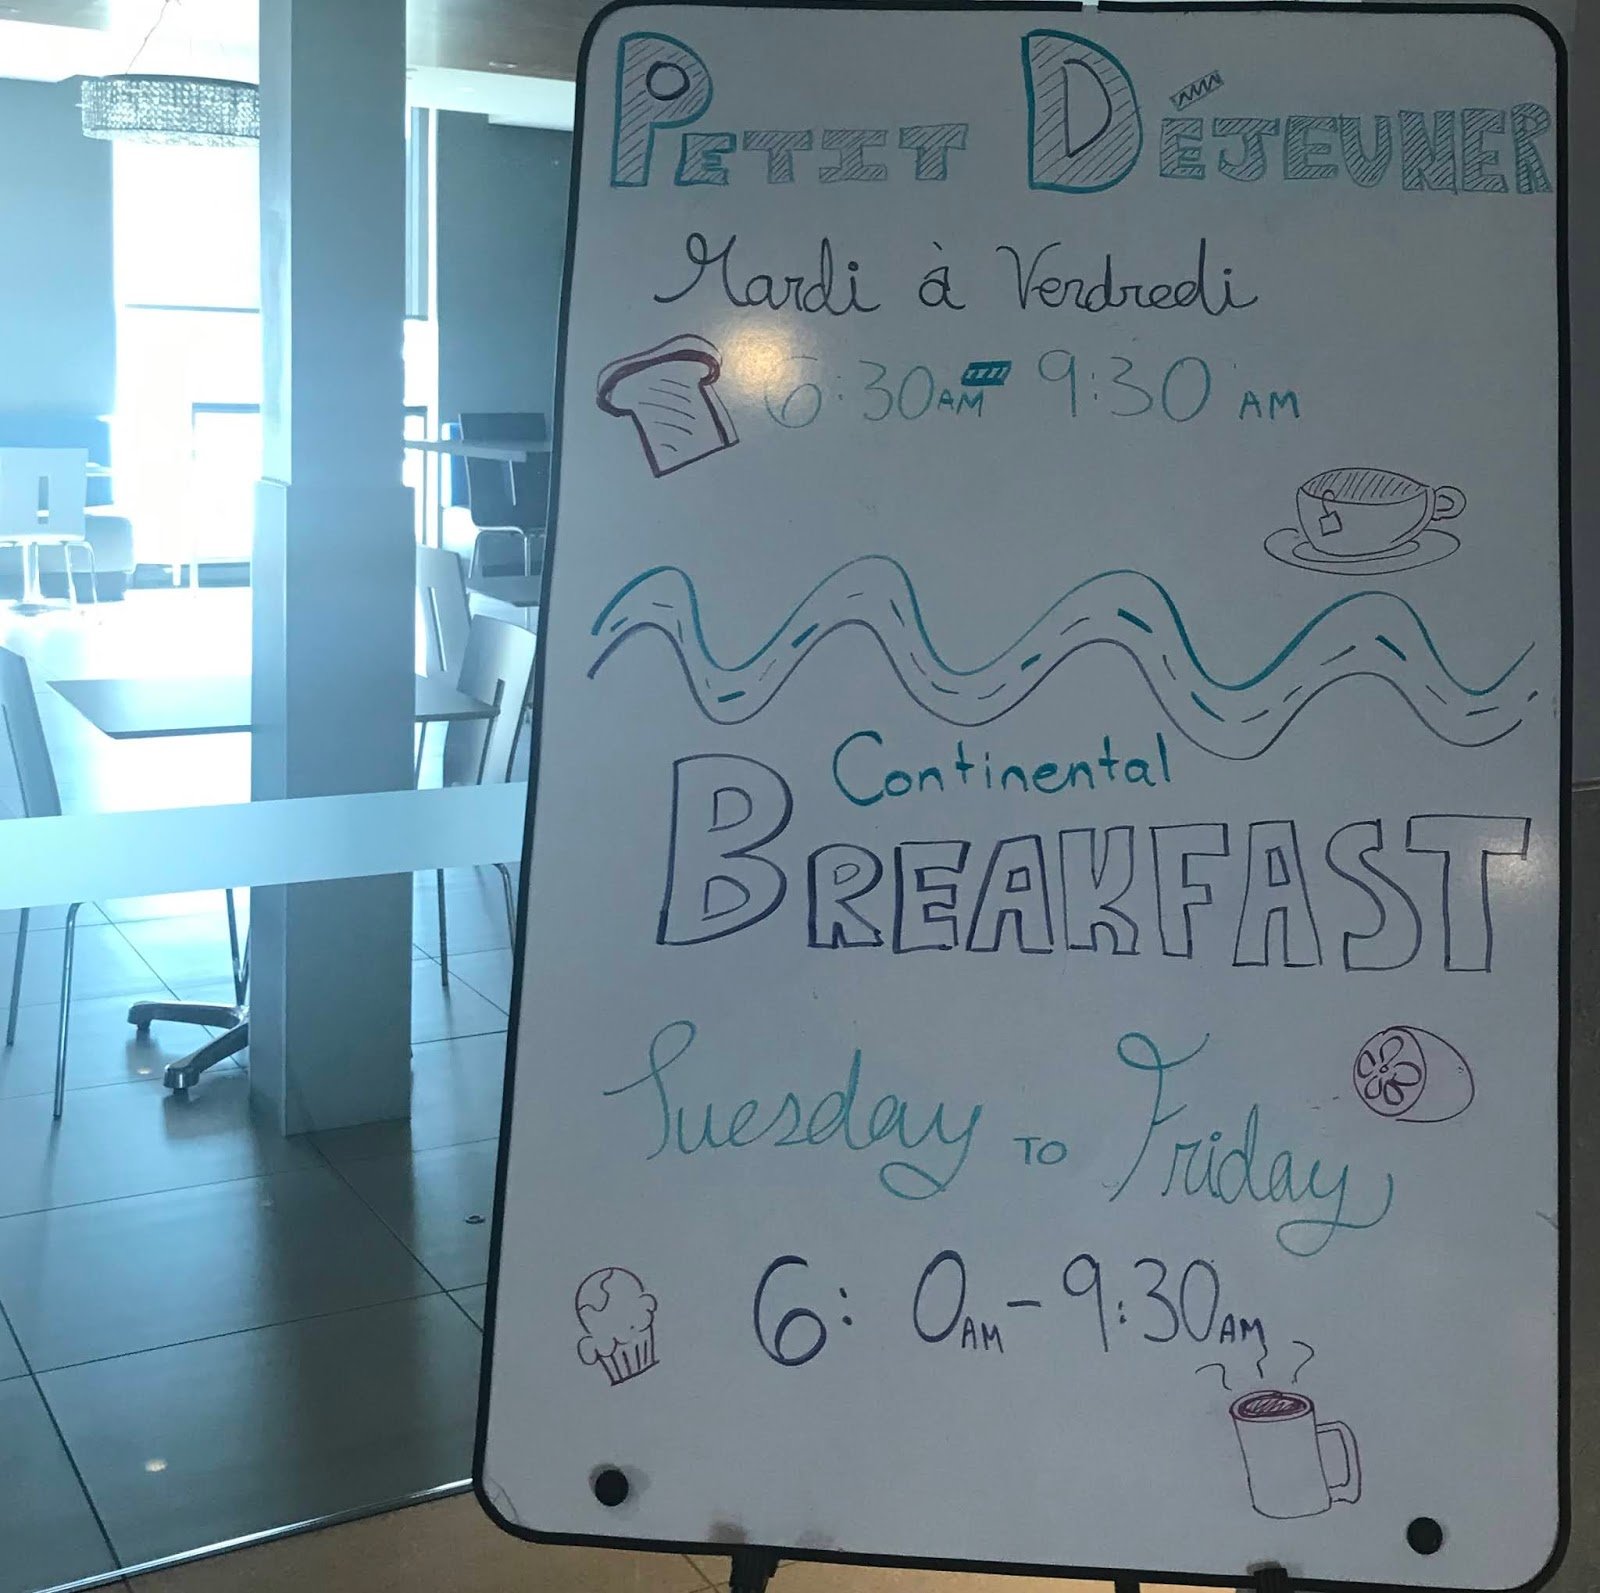 PETIT DÉJEUNER
Mardi à Vendredi
6:30AM - 9:30 AM
Continental
BREAKFAST
Tuesday TO Friday
6: 0AM - 9:30AM